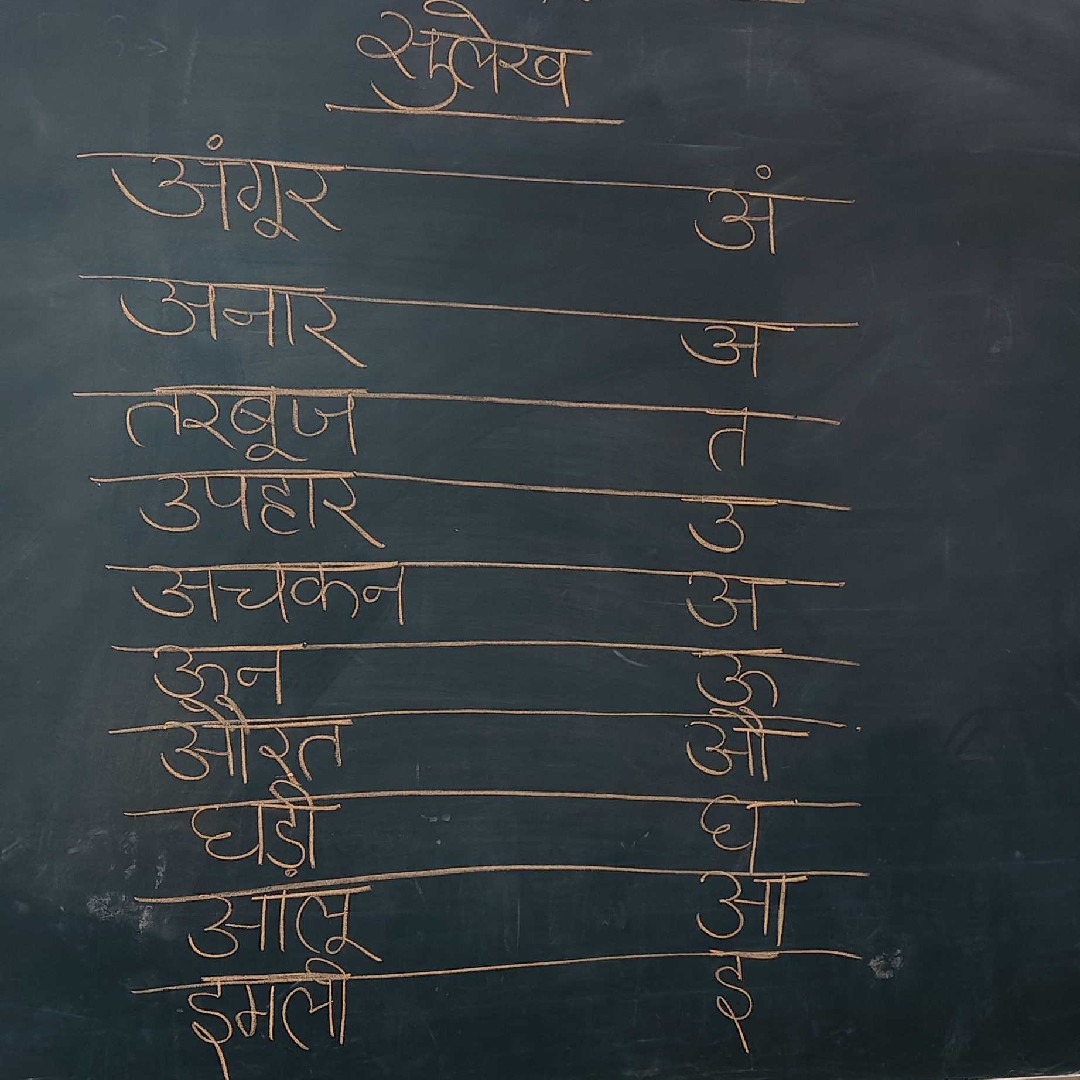 सुलेख
अंगूर अं
अनार अ
तरबूज त
उपहार उ
अचकन अ
ऊन ऊ
औरत औ
घड़ी घ
आलू आ
इमली इ